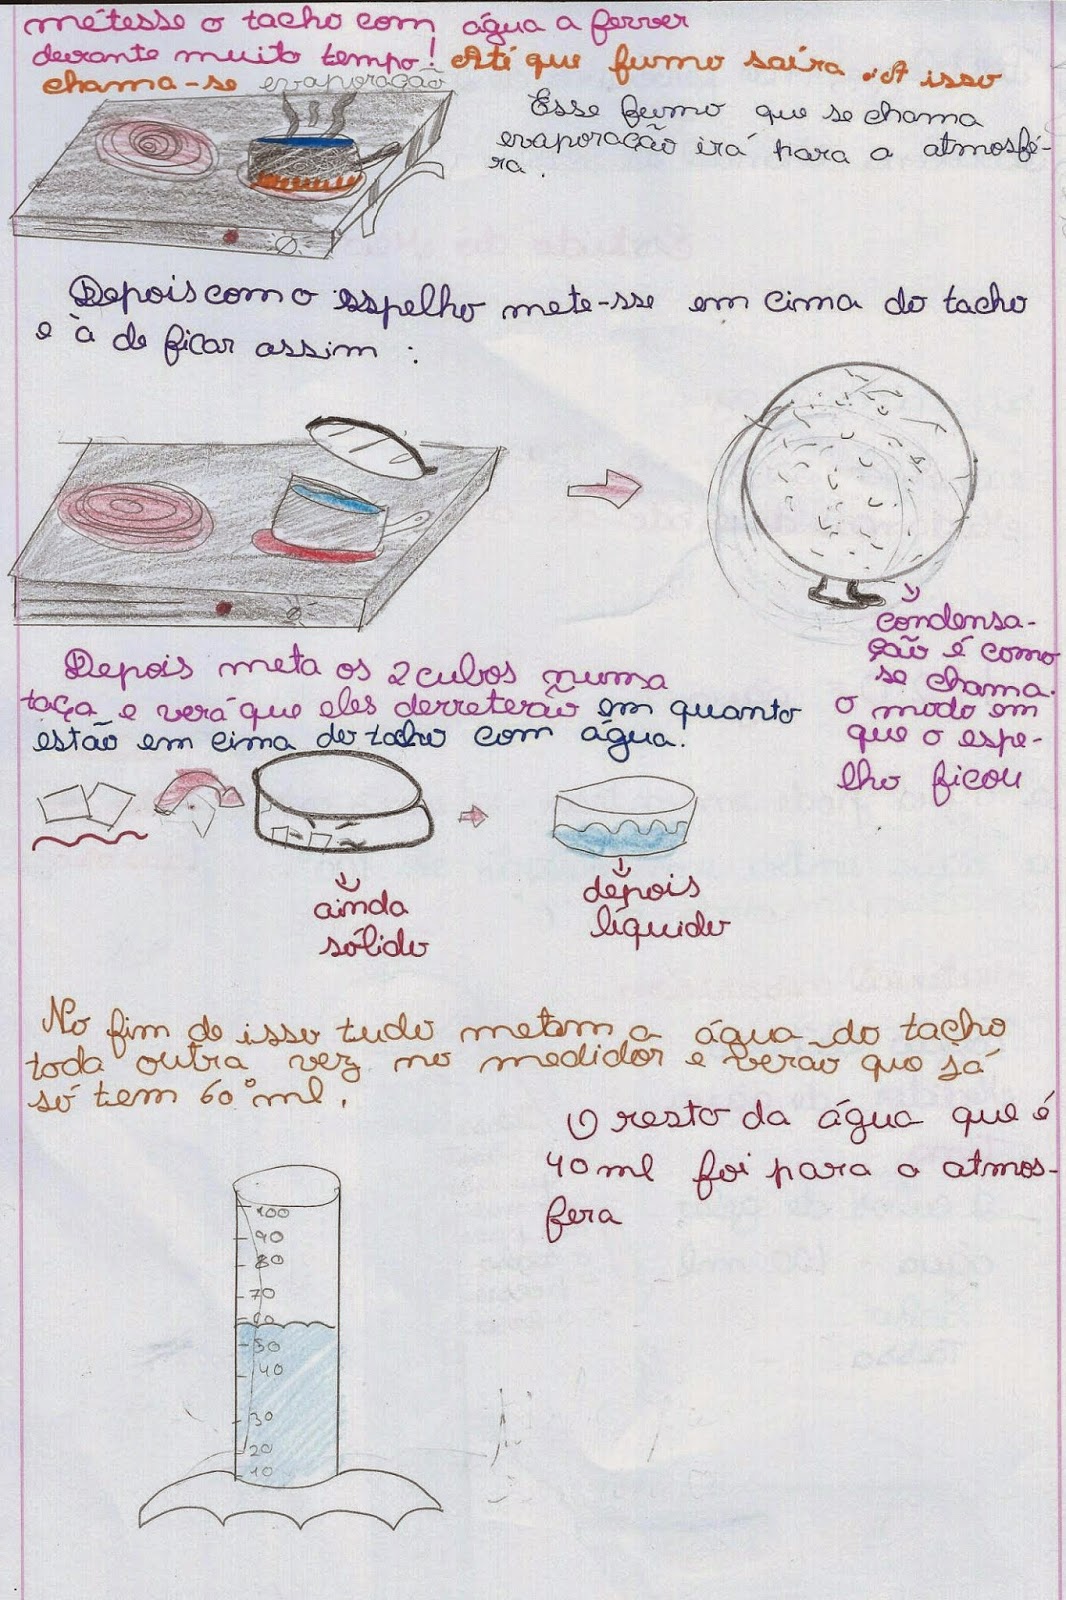 métesse o tacho com água a ferver
devante muito tempo! Até que fumo saíra. A isso
chama-se evaporação
Esse fumo que se chama
evaporação irá para a atmosfé-
ra.
Depois com o espelho mete-sse em cima do tacho
e à de ficar assim :
condensa-
ção é como
se chama.
o modo em
que o espe-
lho ficou
Depois meta os 2 cubos numa
taça e verá que eles derreterão em quanto
estão em cima do tacho com água.
ainda
sólido
depois
líquido
No fim de isso tudo metem a água do tacho
toda outra vez no medidor e verão que já
só tem 60°ml.
O resto da água que é
40ml foi para a atmos-
fera
100
90
80
70
60
50
40
30
20
10